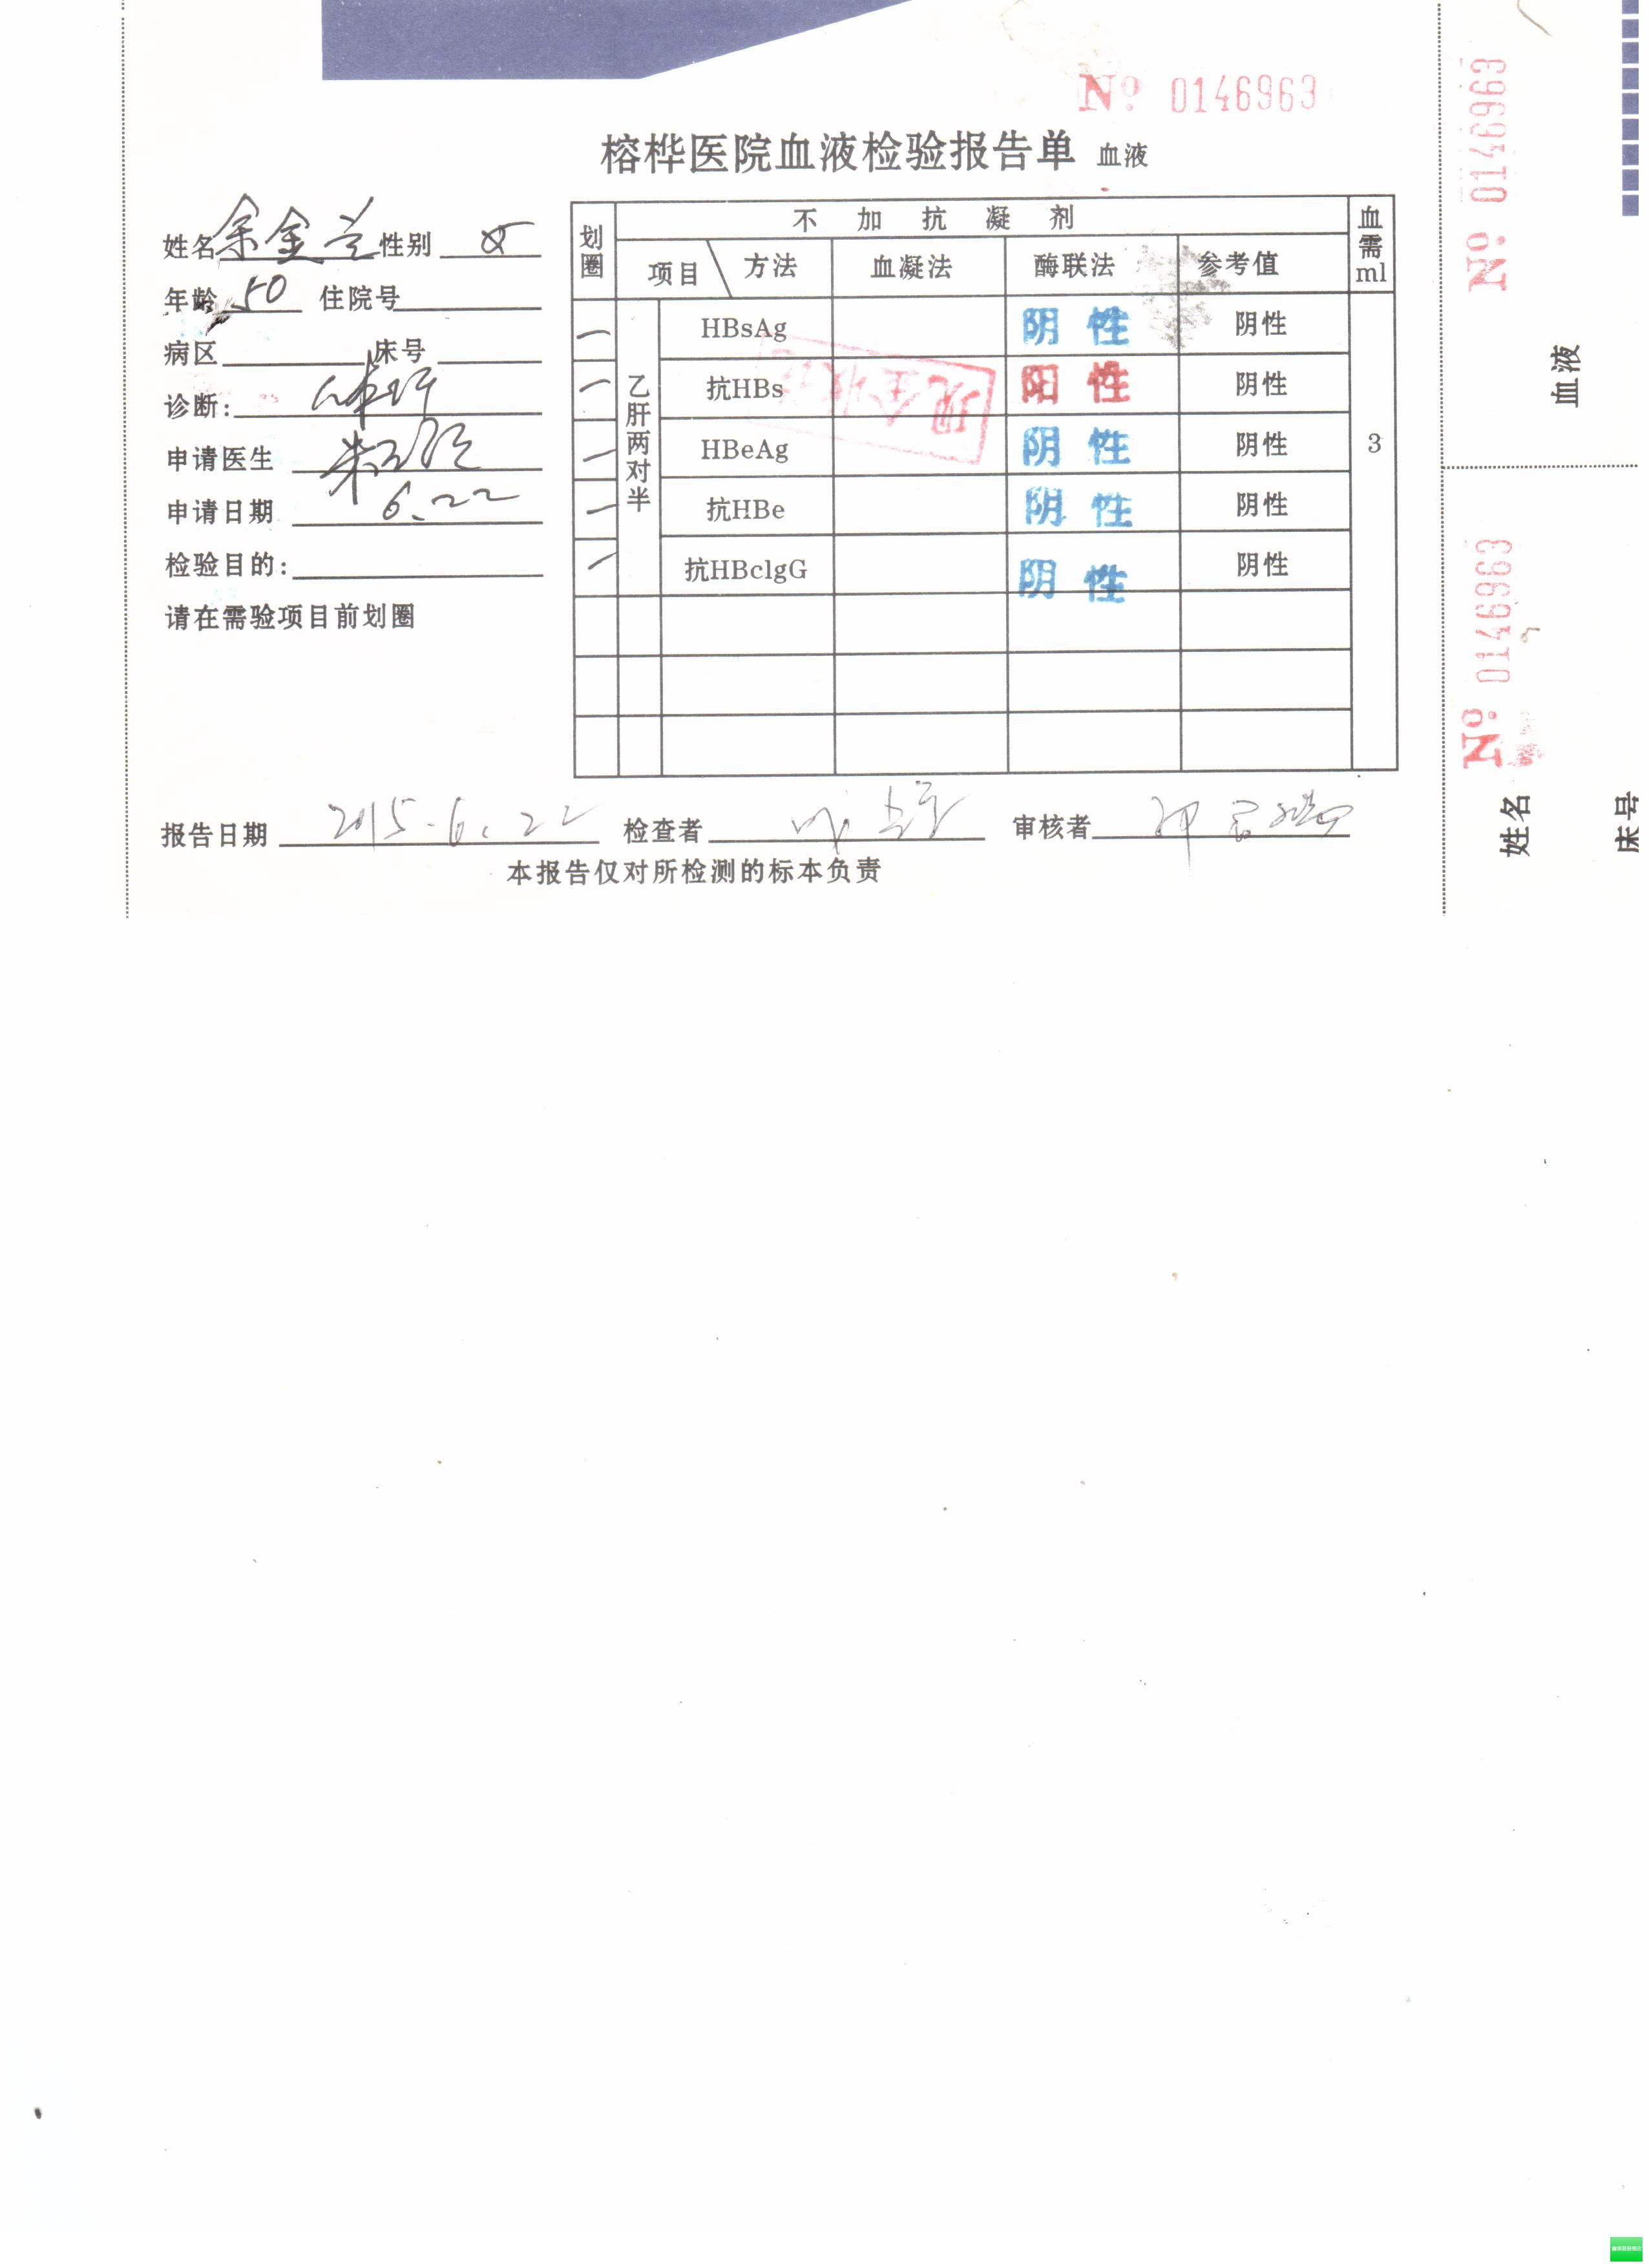 № 0146963
榕桦医院血液检验报告单 血液
姓名 余金兰 性别 女
年龄 50 住院号
病区 床号
诊断: 体检
申请医生
申请日期 6.22
检验目的:
请在需验项目前划圈
划圈 不加抗凝剂 血需ml
项目 方法 血凝法 酶联法 参考值
乙肝两对半
HBsAg 阴性 阴性
抗HBs 阳性 阴性
HBeAg 阴性 阴性 3
抗HBe 阴性 阴性
抗HBclgG 阴性 阴性
现金收讫
报告日期 2015.6.22 检查者 审核者
本报告仅对所检测的标本负责
№ 0146963
血液
№ 0146963
姓名
床号